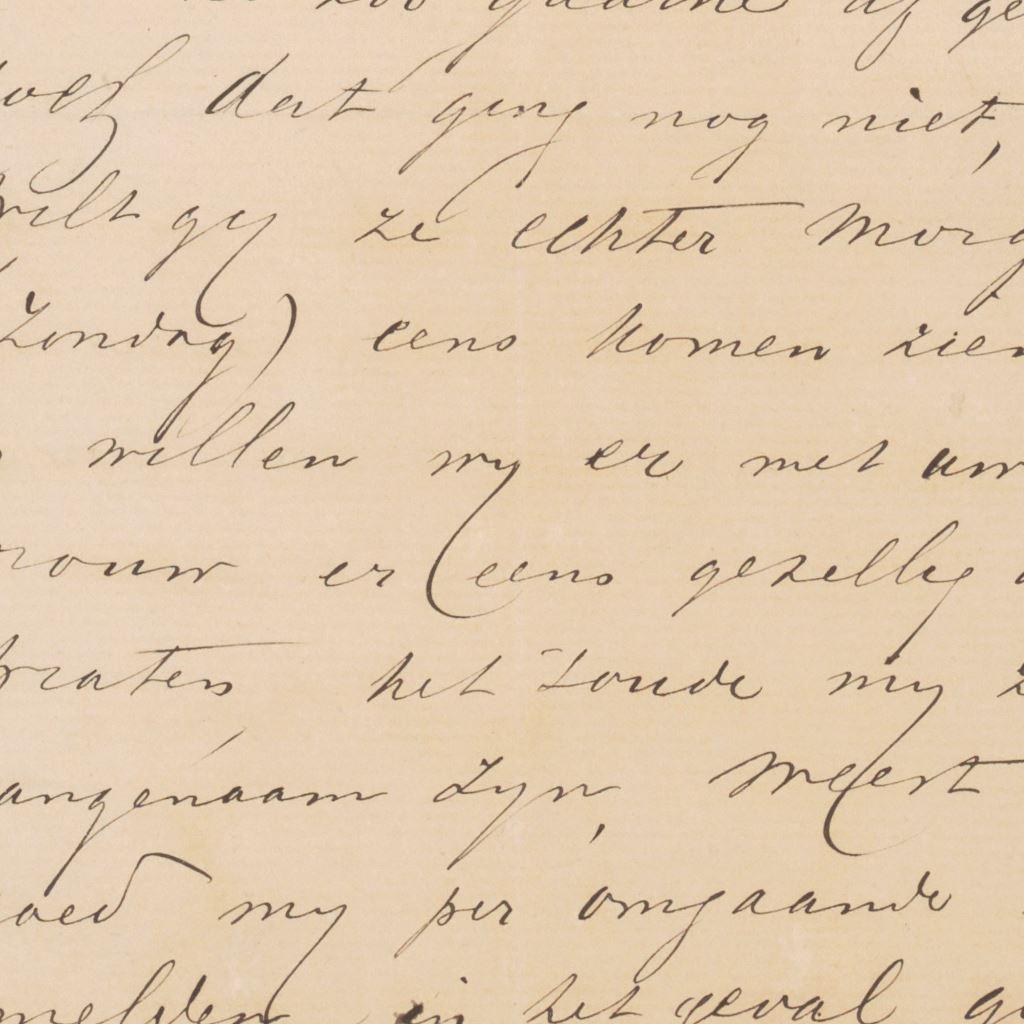 zoo gaarne af ge
dat ging nog niet,
wilt gy ze echter Morg
(Zondag) eens komen zien
willen wy er met uw
rouw er eens gezellig
praten het zoude my z
angenaam zyn, Weest
oed my per omgaande
melden in het geval g